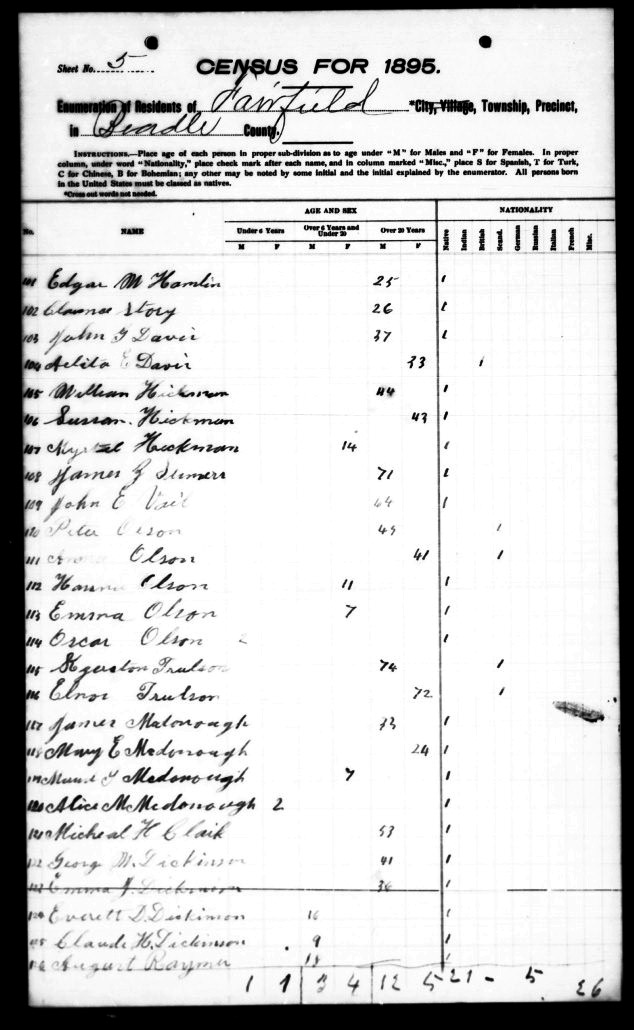 Sheet No. 5
CENSUS FOR 1895.
Enumeration of Residents of Fairfield *City, Village, Township, Precinct,
in Beadle County.
INSTRUCTIONS.—Place age of each person in proper sub-division as to age under "M" for Males and "F" for Females. In proper
column, under word "Nationality," place check mark after each name, and in column marked "Misc.," place S for Spanish, T for Turk,
C for Chinese, B for Bohemian; any other may be noted by some initial and the initial explained by the enumerator. All persons born
in the United States must be classed as natives.
*Cross out words not needed.
AGE AND SEX NATIONALITY
No. NAME Under 6 Years Over 6 Years and Under 20 Over 20 Years Native Indian British Scand. German Russian Italian French Misc.
M F M F M F
101 Edgar M Hamlin 25 1
102 Clarence Story 26 1
103 John F Davis 37 1
104 E Davis 33 1
105 William Hickman 44 1
106 Sussan. Hickman 43 1
107 Hickman 14 1
108 James 71 1
109 John E Vail 64 1
110 Peter Olson 49 1
111 Olson 41 1
112 Hanna Olson 11 1
113 Emma Olson 7 1
114 Oscar Olson 2 1
115 Trulson 74 1
116 Elnor Trulson 72 1
117 James 33 1
118 Mary E Mcdonough 24 1
119 Mcdonough 7 1
120 Alice M Mcdonough 2 1
121 Micheal H Clark 53 1
122 Georg M. Dickinson 41 1
123 Emma J. Dickinson 36 1
124 Everett D. Dickinson 16 1
125 Claude H. Dickinson 9 1
126 August Raymer 18 1
1 1 3 4 12 5 21 - 5 26